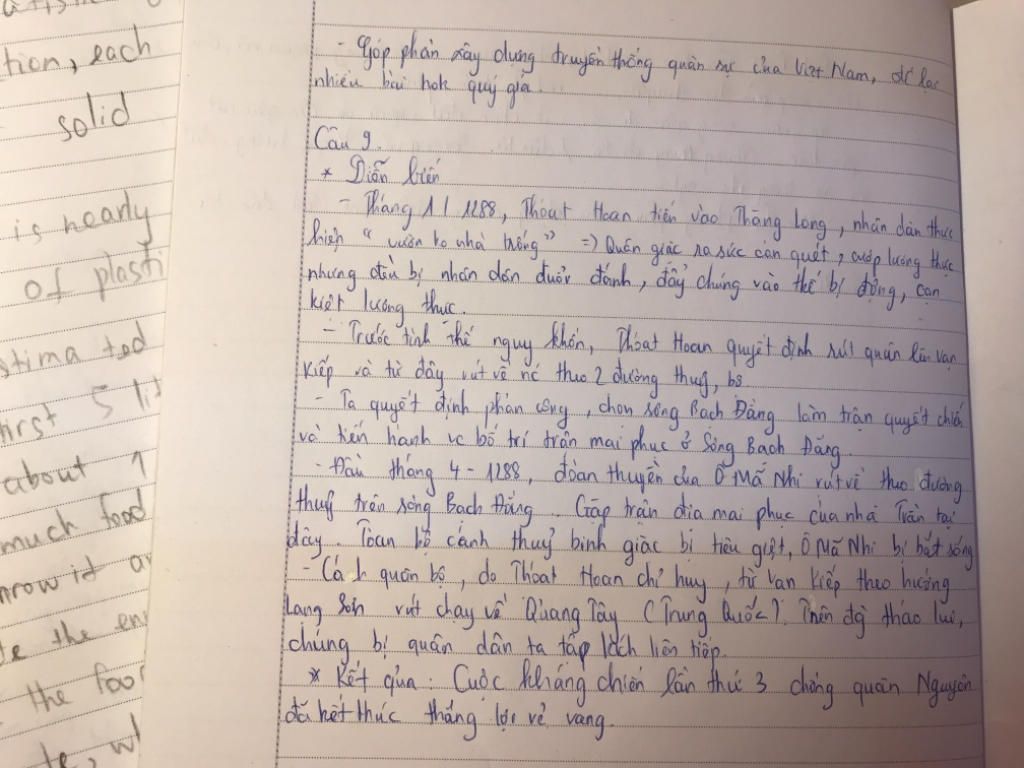 - Góp phần xây dựng truyền thống quân sự của Việt Nam, để lại
nhiều bài hok quý giá.
Câu 9.
* Diễn biến
- Tháng 1 / 1288, Thoát Hoan tiến vào Thăng Long, nhân dân thực
hiện " vườn ko nhà trống " => Quân giặc ra sức càn quét, cướp lương thực
nhưng đều bị nhân dân đuổi đánh, đẩy chúng vào thế bị động, cạn
kiệt lương thực.
- Trước tình thế nguy khốn, Thoát Hoan quyết định rút quân lên Vạn
Kiếp và từ đây rút về nc theo 2 đường thuỷ, bộ.
- Ta quyết định phản công, chọn sông Bạch Đằng làm trận quyết chiến
và tiến hành vc bố trí trận mai phục ở Sông Bạch Đằng.
- Đầu tháng 4 - 1288, đoàn thuyền của Ô Mã Nhi rút về theo đường
thuỷ trên sông Bạch Đằng. Gặp trận địa mai phục của nhà Trần tại
đây. Toàn bộ cánh thuỷ binh giặc bị tiêu giệt, Ô Mã Nhi bị bắt sống
- Cánh quân bộ, do Thoát Hoan chỉ huy, từ Vạn Kiếp theo hướng
Lạng Sơn rút chạy về Quảng Tây (Trung Quốc). Trên đg tháo lui,
chúng bị quân dân ta tập kích liên tiếp.
* Kết quả : Cuộc kháng chiến lần thứ 3 chống quân Nguyên
đã kết thúc thắng lợi vẻ vang.
tion, each
solid
is nearly
of plasti
stimated
first 5 lit
about 1
much food
hrow it
the en
the foo